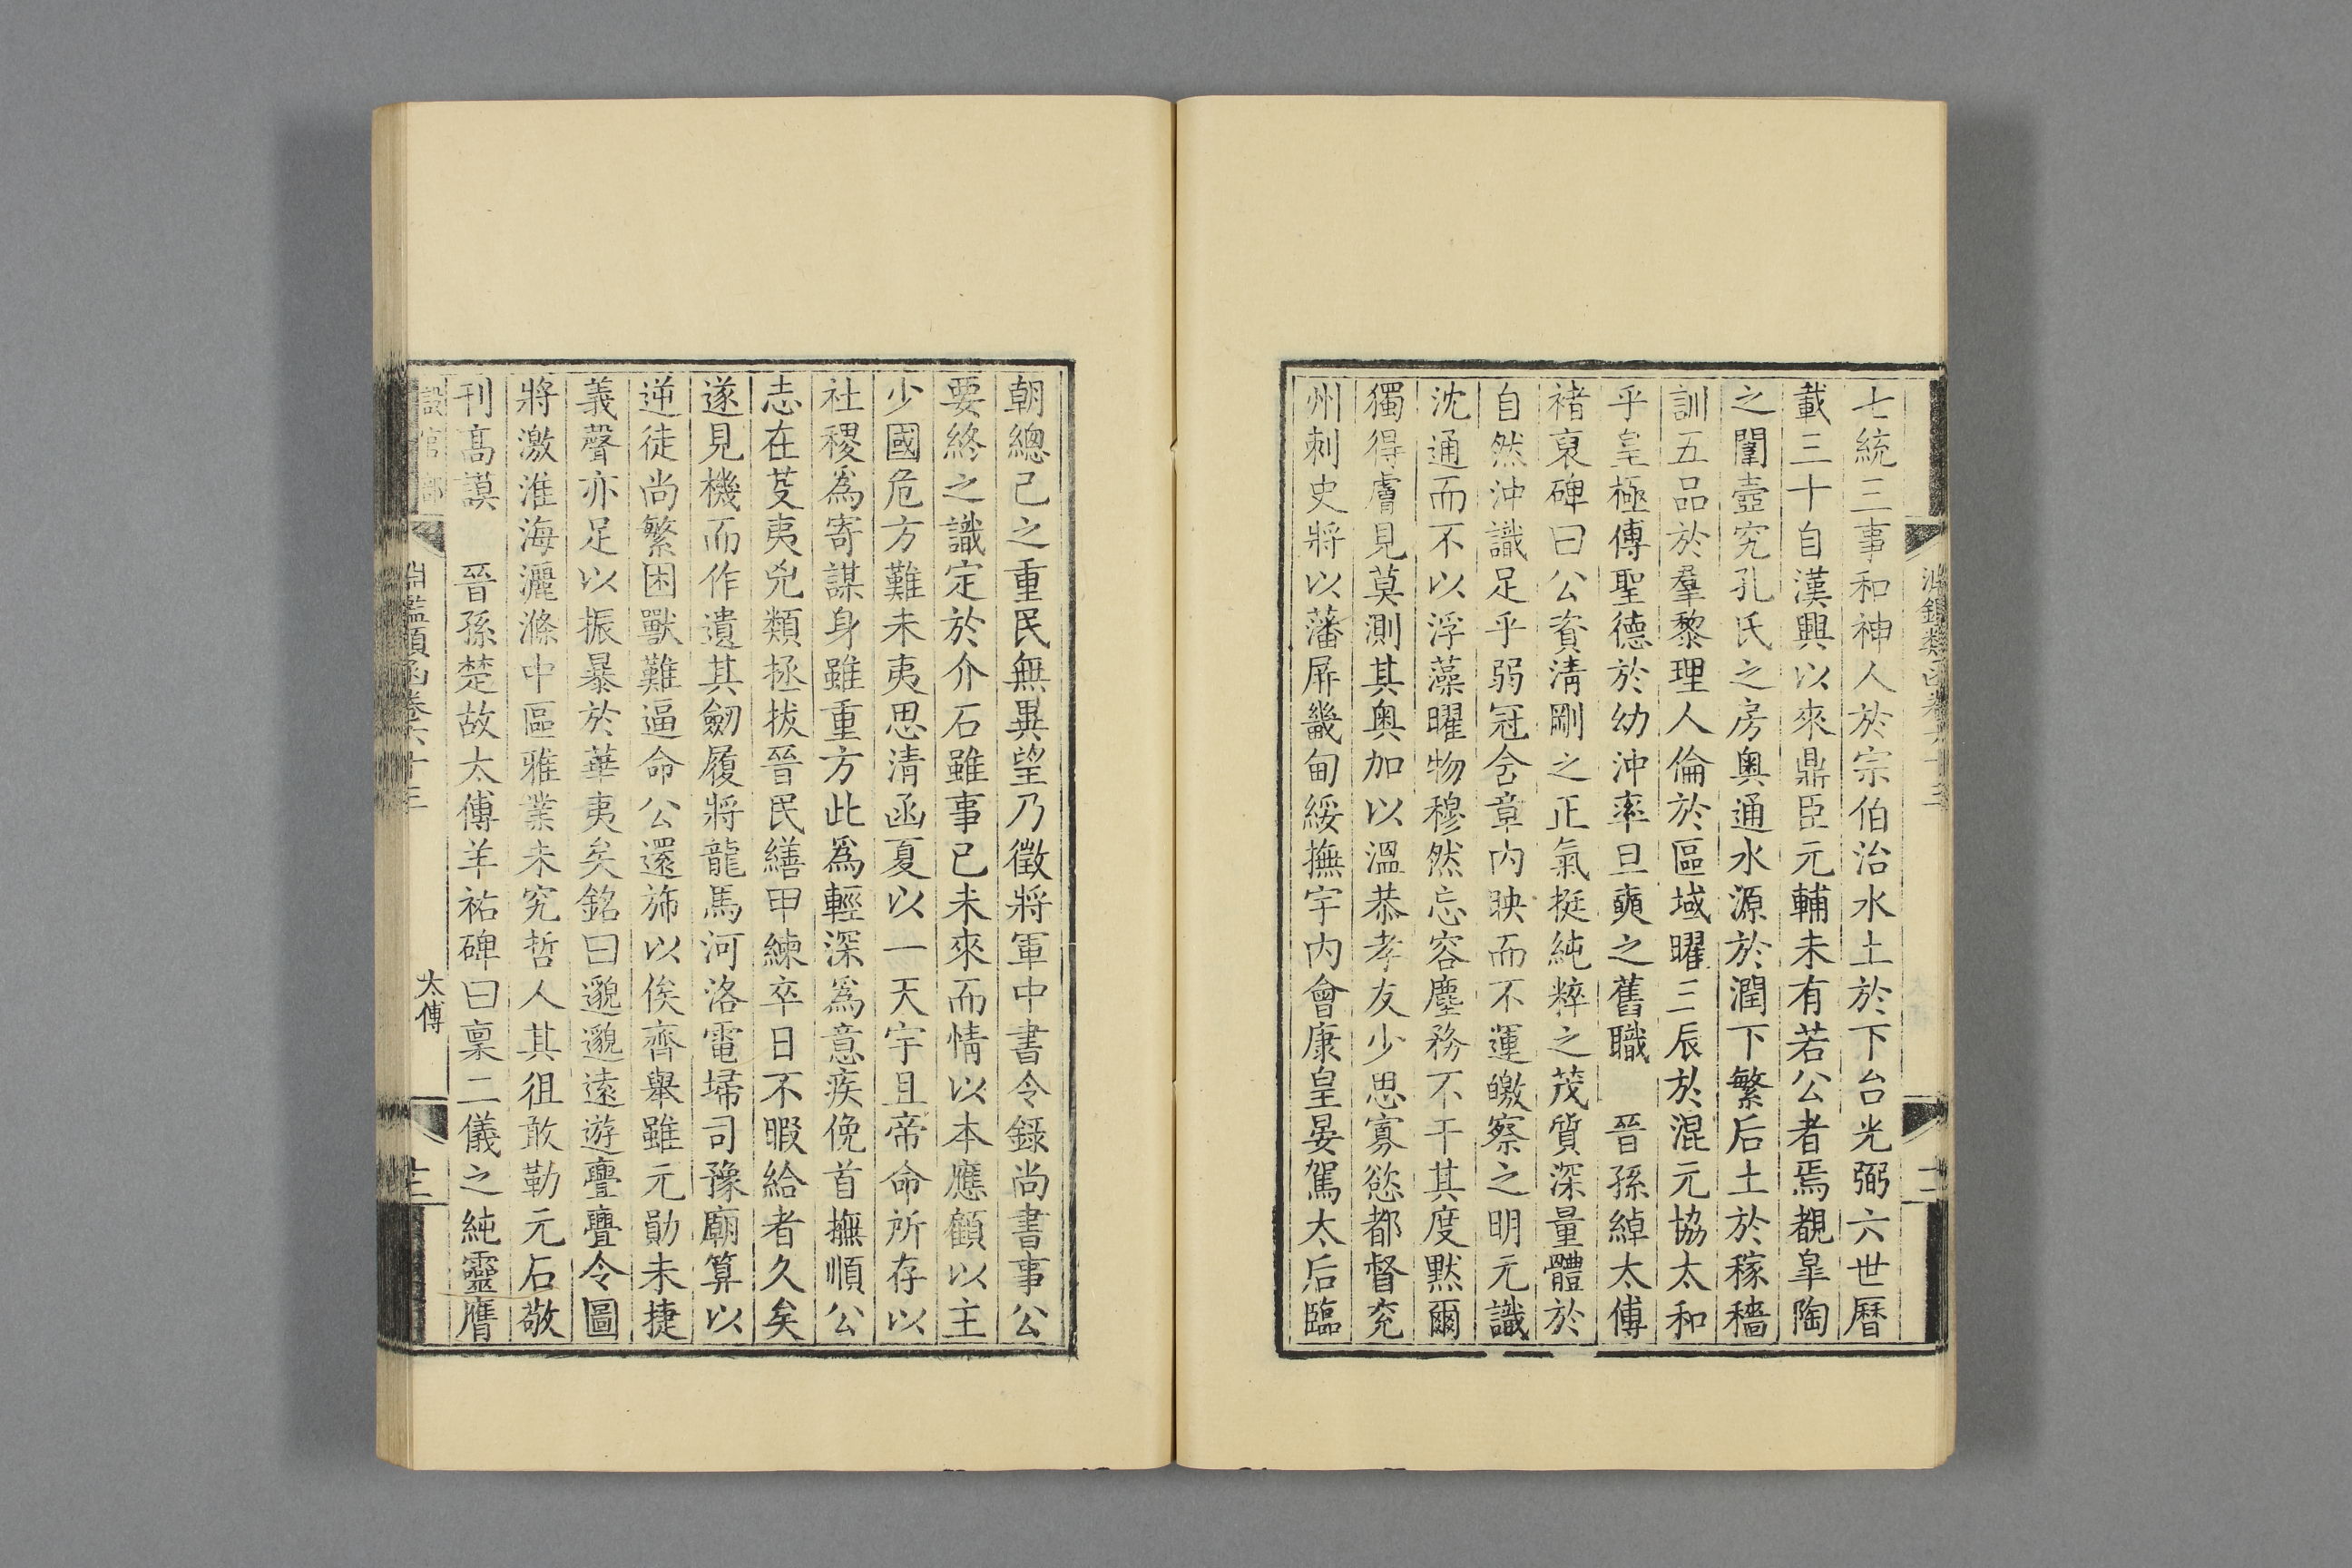 七統三事和神人於宗伯治水土於下台光弼六世曆
載三十自漢興以來鼎臣元輔未有若公者焉覩皐陶
之閨壼究孔氏之房奧通水源於潤下繁后土於稼穡
訓五品於羣黎理人倫於區域曜三辰於混元協太和
乎皇極傅聖德於幼沖率旦奭之舊職　晉孫綽太傅
禇裒碑曰公資淸剛之正氣挺純粹之茂質深量體於
自然沖識足乎弱冠含章內映而不運皦察之明元識
沈通而不以浮藻曜物穆然忘容塵務不干其度黙爾
獨得膚見莫測其奥加以溫恭孝友少思寡慾都督兖
州刺史將以藩屏畿甸綏撫宇內會康皇晏駕太后臨
朝總己之重民無異望乃徵將軍中書令錄尚書事公
要終之識定於介石雖事已未來而情以本應顧以主
少國危方難未夷思清函夏以一天宇且帝命所存以
社稷爲寄謀身雖重方此爲輕深爲意疾俛首撫順公
志在芟夷兇類拯拔晉民繕甲練卒日不暇給者久矣
遂見機而作遺其劒履將龍馬河洛電埽司豫廟算以
逆徒尚繁困獸難逼命公還斾以俟齊舉雖元勛未捷
義聲亦足以振暴於華夷矣銘曰邈邈遠遊亹亹令圖
將激淮海灑滌中區雅業未究哲人其徂敢勒元石敬
刊髙謨　晉孫楚故太傅羊祜碑曰稟二儀之純靈膺
設官部
鑑類函卷六十三
太傅